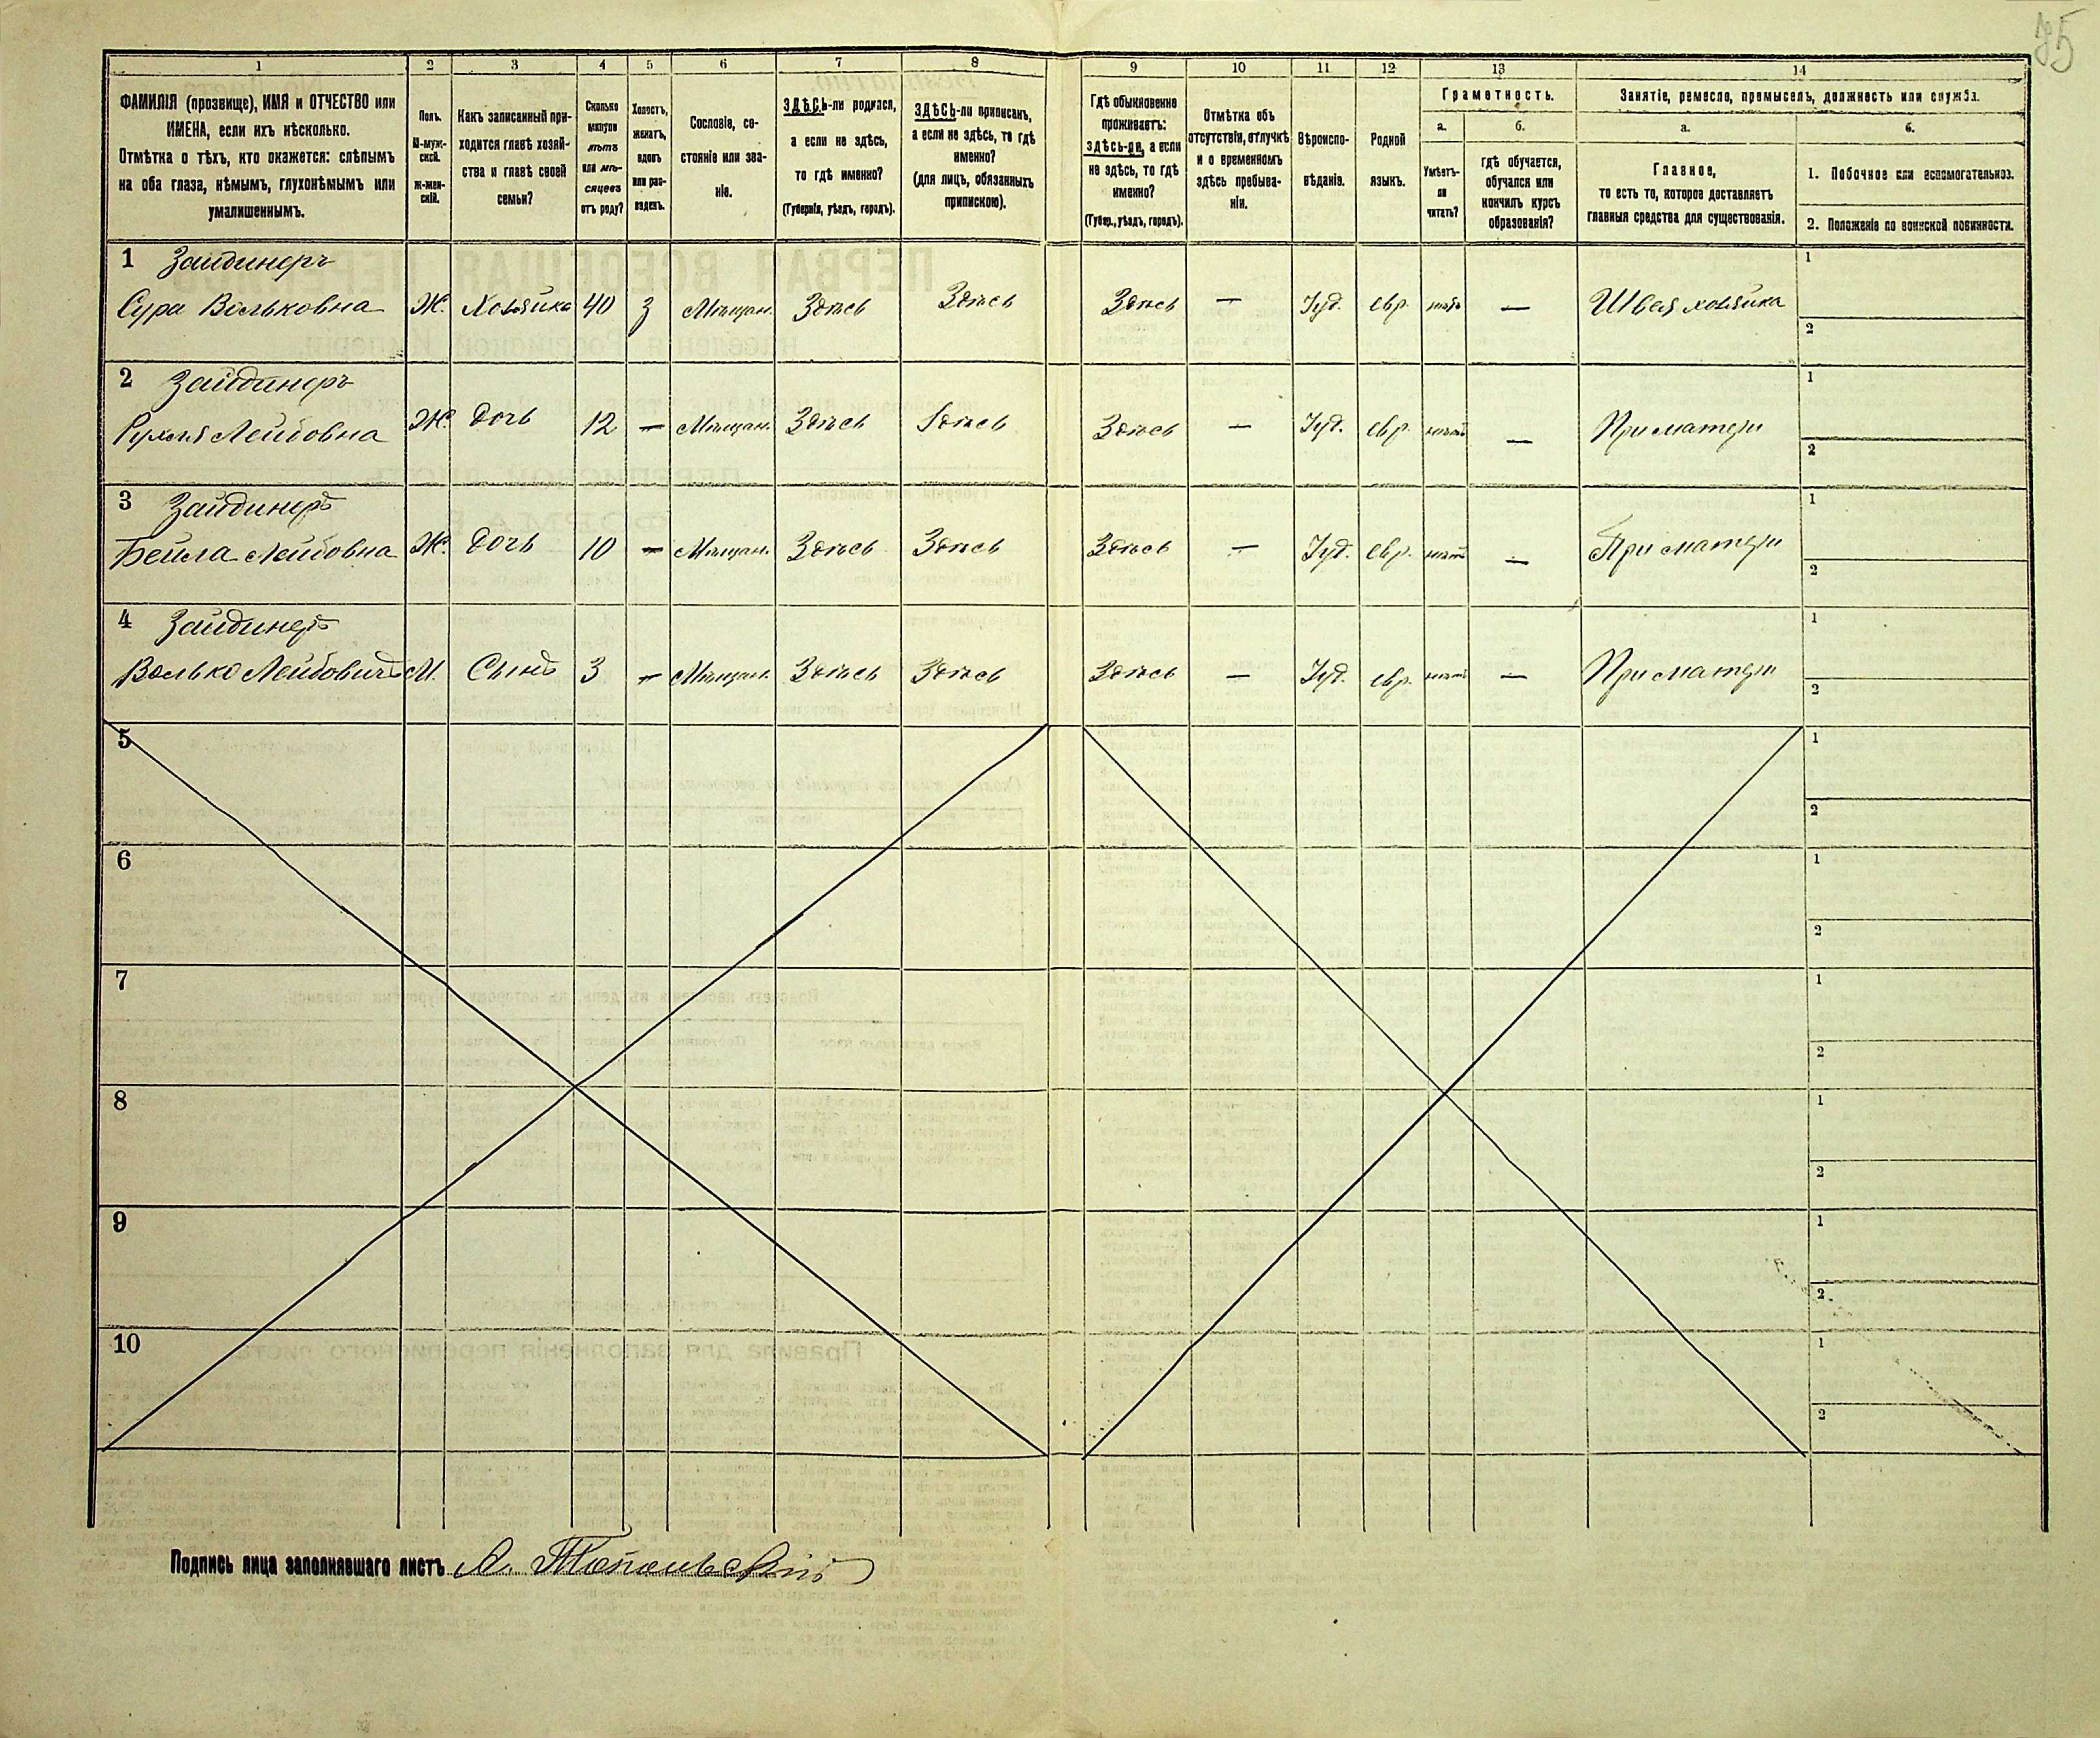 95
1 2 3 4 5 6 7 8 9 10 11 12 13 14
ФАМИЛІЯ (прозвище), ИМЯ и ОТЧЕСТВО или
ИМЕНА, если ихъ нѣсколько.
Отмѣтка о тѣхъ, кто окажется: слѣпымъ
на оба глаза, нѣмымъ, глухонѣмымъ или
умалишеннымъ.
Полъ.
М-муж-
ской.
Ж-жен-
скій.
Какъ записанный при-
ходится главѣ хозяй-
ства и главѣ своей
семьи?
Сколько
минуло
лѣтъ
или мѣ-
сяцевъ
отъ роду?
Холостъ,
женатъ,
вдовъ
или раз-
веденъ.
Сословіе, со-
стояніе или зва-
ніе.
ЗДѢСЬ-ли родился,
а если не здѣсь,
то гдѣ именно?
(Губернія, уѣздъ, городъ).
ЗДѢСЬ-ли приписанъ,
а если не здѣсь, то гдѣ
именно?
(для лицъ, обязанныхъ
припискою).
Гдѣ обыкновенно
проживаетъ:
здѣсь-ли, а если
не здѣсь, то гдѣ
именно?
(Губер., уѣздъ, городъ).
Отмѣтка объ
отсутствіи, отлучкѣ
и о временномъ
здѣсь пребыва-
ніи.
Вѣроиспо-
вѣданіе.
Родной
языкъ.
Грамотность.
а.
Умѣетъ-
ли
читать?
б.
гдѣ обучается,
обучался или
кончилъ курсъ
образованія?
Занятіе, ремесло, промыселъ, должность или служба.
а.
Главное,
то есть то, которое доставляетъ
главныя средства для существованія.
б.
1. Побочное или вспомогательное.
2. Положеніе по воинской повинности.
1 Зайдинеръ
Сура Вольковна Ж. Хозяйка 40 З Мѣщан. Здѣсь Здѣсь Здѣсь — Іуд. евр. нѣтъ — Швея хозяйка
1
2
2 Зайдинеръ
Рухля Лейбовна Ж. Дочь 12 — Мѣщан. Здѣсь Здѣсь Здѣсь — Іуд. евр. нѣтъ — При матери
1
2
3 Зайдинеръ
Бейла Лейбовна Ж. Дочь 10 — Мѣщан. Здѣсь Здѣсь Здѣсь — Іуд. евр. нѣтъ — При матери
1
2
4 Зайдинеръ
Волько Лейбовичъ М. Сынъ 3 — Мѣщан. Здѣсь Здѣсь Здѣсь — Іуд. евр. нѣтъ — При матери
1
2
5
1
2
6
1
2
7
1
2
8
1
2
9
1
2
10
1
2
Подпись лица заполнявшаго листъ А. Топольскій